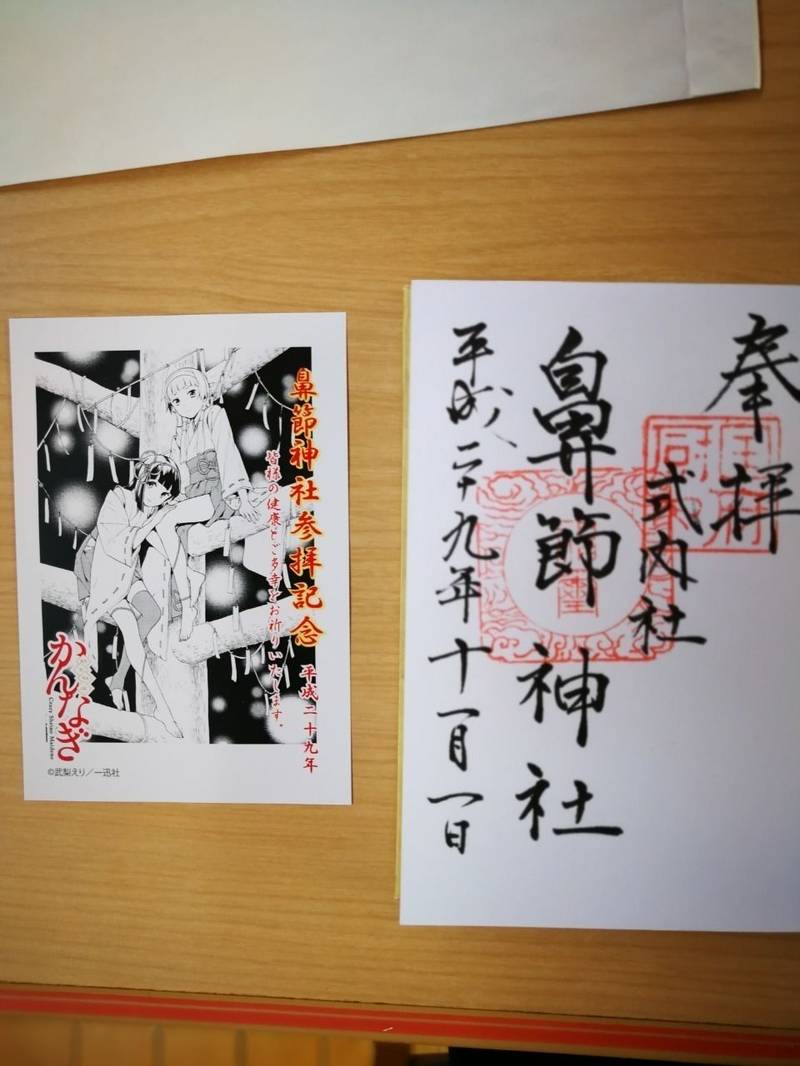 鼻節神社参拝記念
皆様の健康とご多幸をお祈りいたします。
平成二十九年
かんなぎ
Crazy Shrine Maidens
©武梨えり／一迅社
奉拝
式内社
鼻節神社
平成二十九年十一月一日